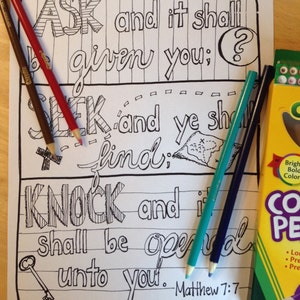 ASK and it shall
be given you;
?
SEEK and ye shall
find;
KNOCK and it
shall be opened
unto you.
Matthew 7:7
Bright
Bold
Color